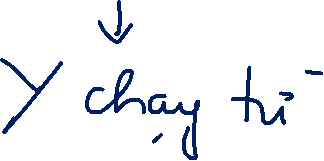 ↓
Y chạy từ -